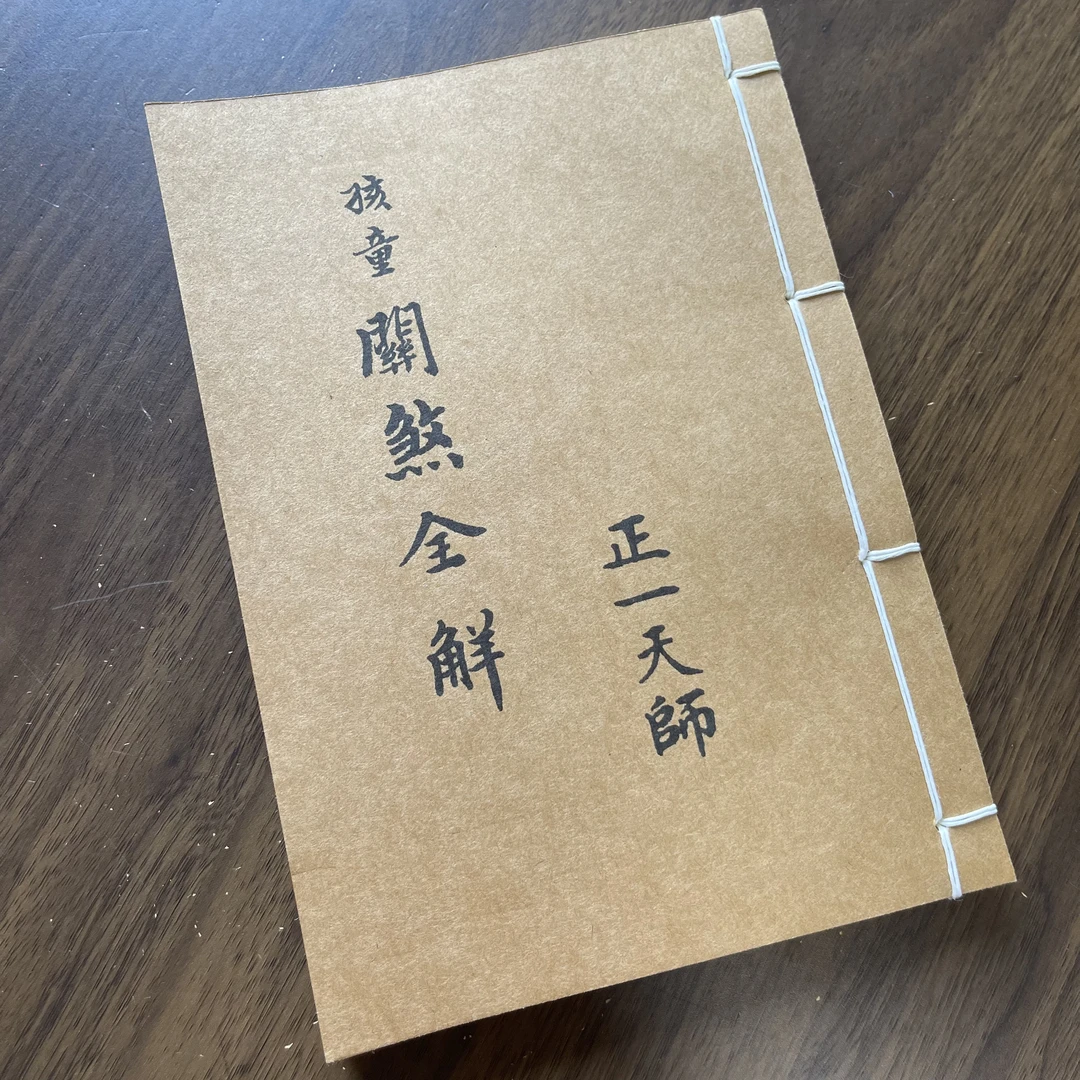 正一天師
孩童關煞全解